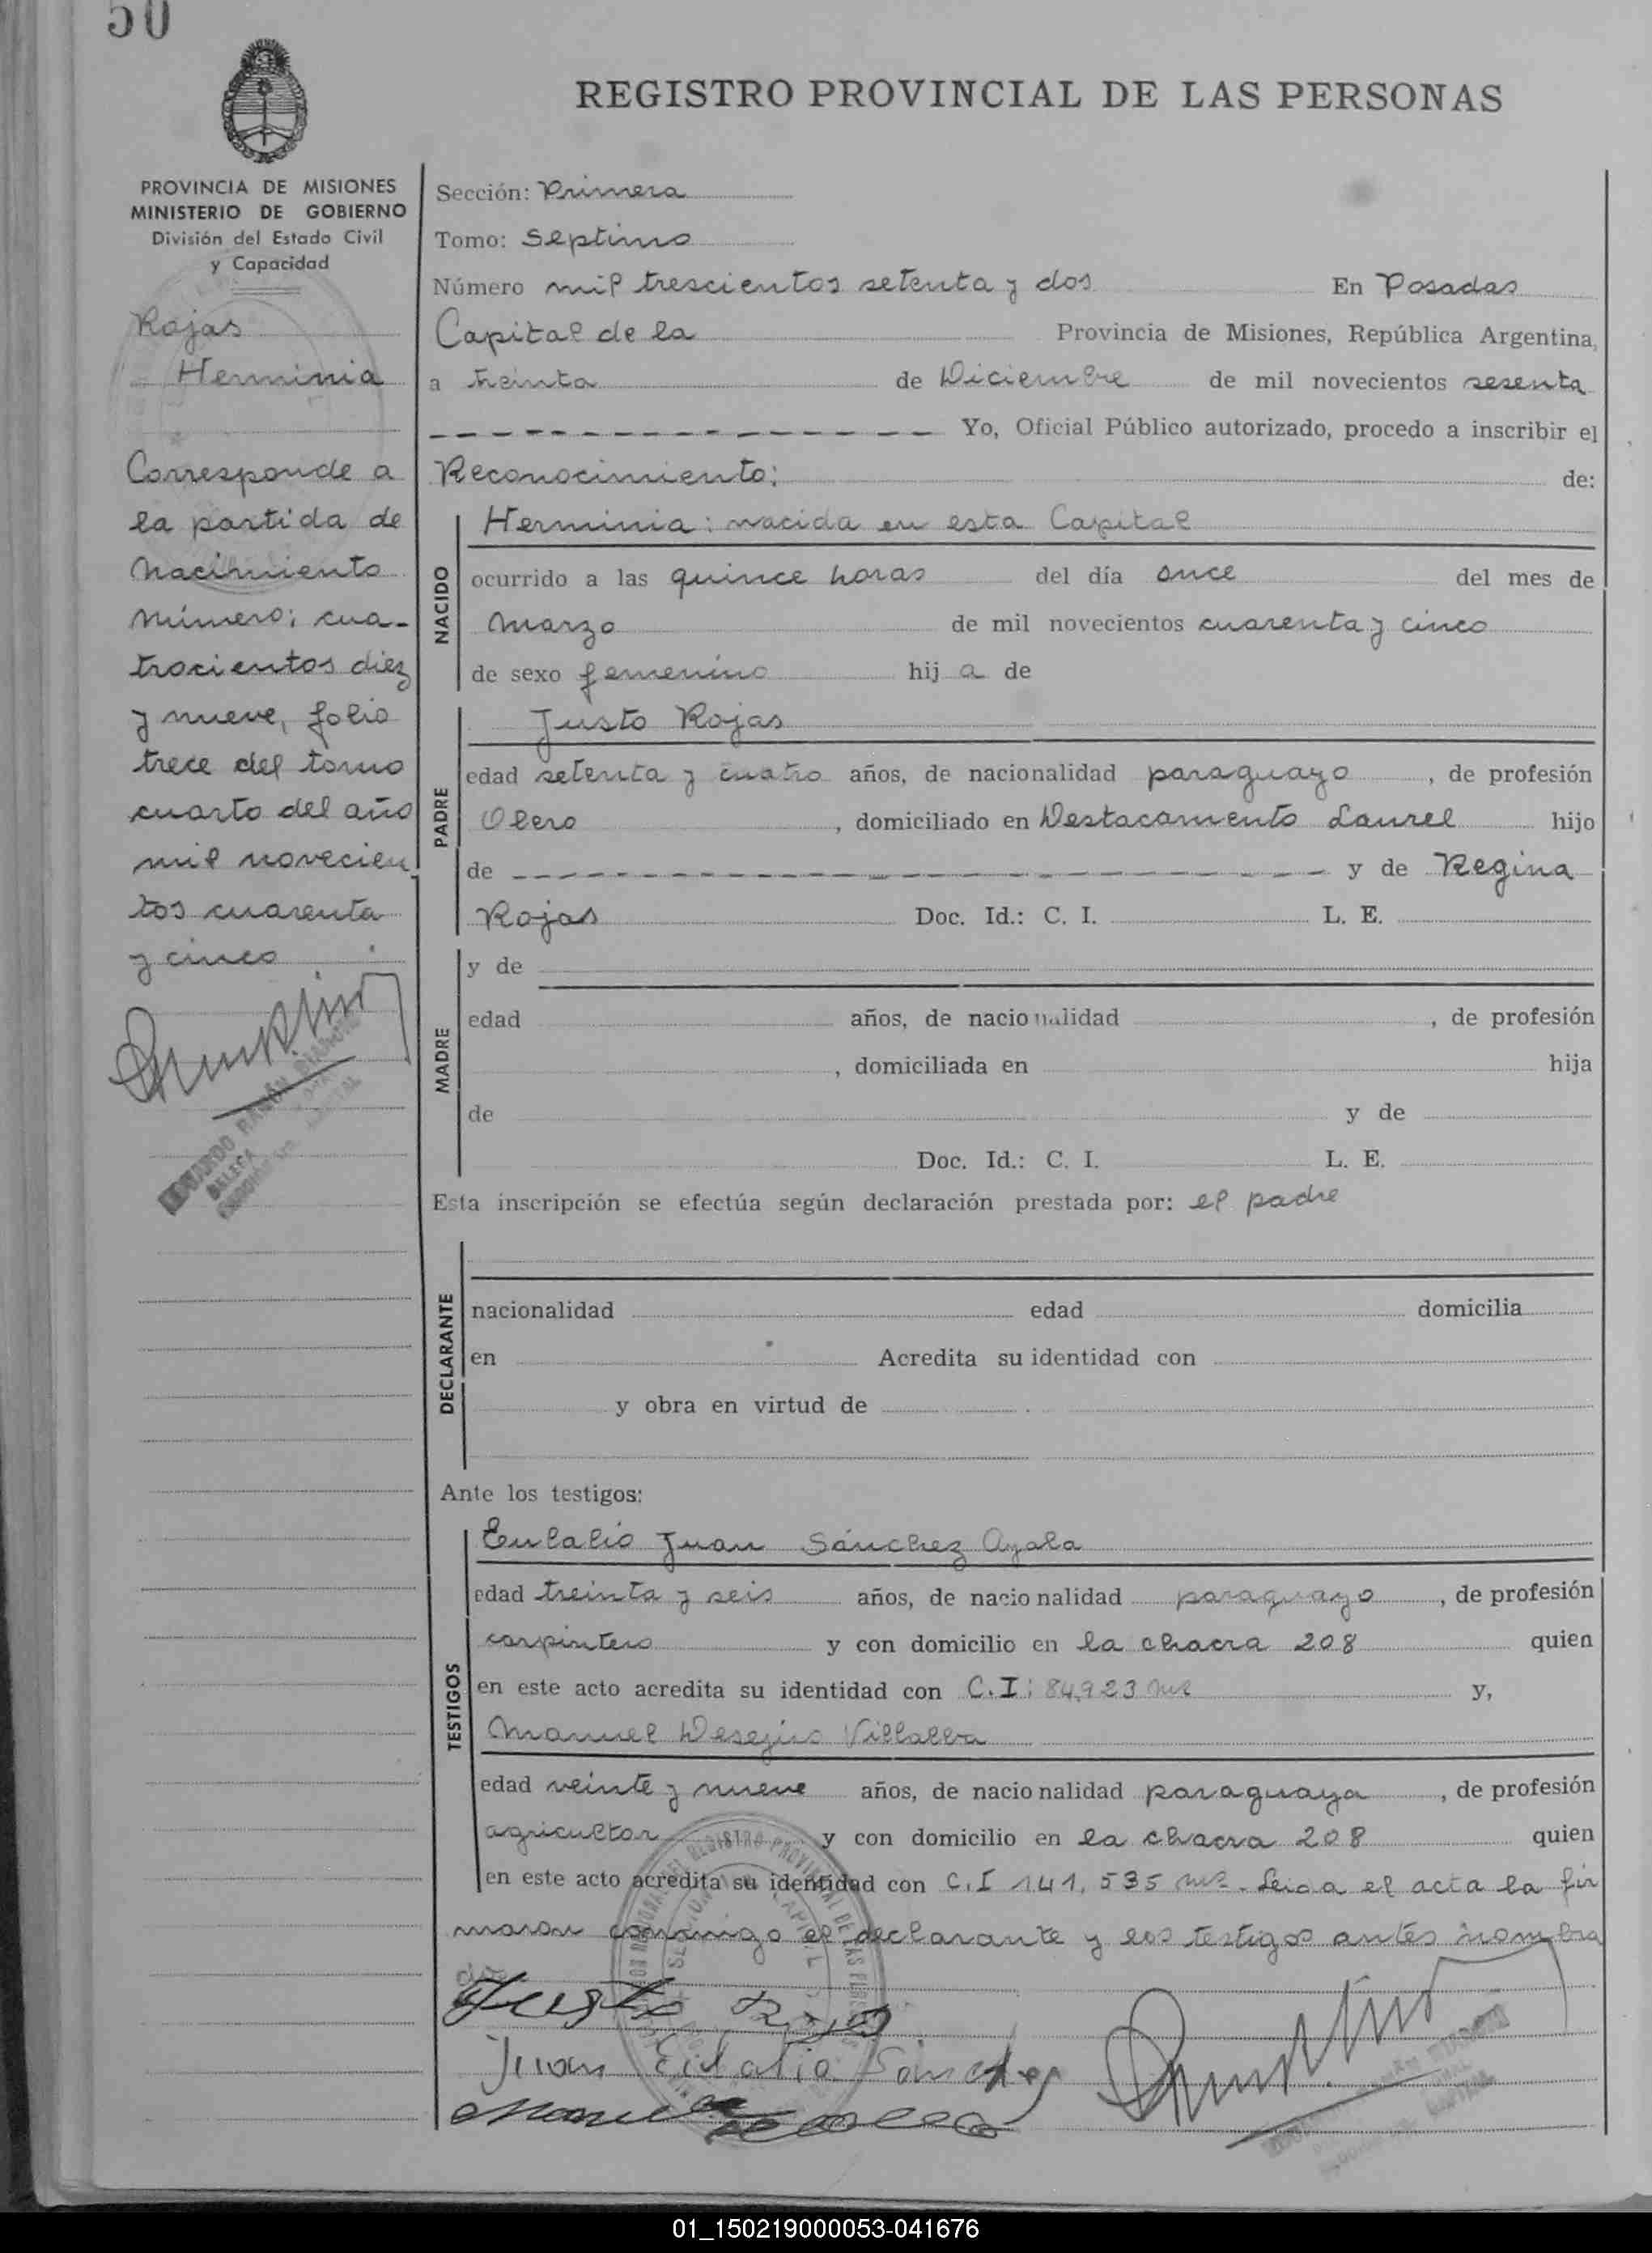 50
REGISTRO PROVINCIAL DE LAS PERSONAS
PROVINCIA DE MISIONES
MINISTERIO DE GOBIERNO
División del Estado Civil
y Capacidad
Rojas
Herminia
Corresponde a
la partida de
Nacimiento
Número; cua-
trocientos diez
y nueve, folio
trece del tomo
cuarto del año
mil novecien
tos cuarenta
y cinco
Sección: Primera
Tomo: Septimo
Número mil trescientos setenta y dos En Posadas
Capital de la Provincia de Misiones, República Argentina,
a treinta de Diciembre de mil novecientos sesenta
Yo, Oficial Público autorizado, procedo a inscribir el
Reconocimiento: de:
NACIDO
Herminia: nacida en esta Capital
ocurrido a las quince horas del día once del mes de
Marzo de mil novecientos cuarenta y cinco
de sexo femenino hij a de
PADRE
Justo Rojas
edad setenta y cuatro años, de nacionalidad paraguayo, de profesión
Olero, domiciliado en Destacamento Laurel hijo
de y de Regina
Rojas Doc. Id.: C. I. L. E.
MADRE
y de
edad años, de nacionalidad , de profesión
, domiciliada en hija
de y de
Doc. Id.: C. I. L. E.
Esta inscripción se efectúa según declaración prestada por: el padre
DECLARANTE
nacionalidad edad domicilia
en Acredita su identidad con
y obra en virtud de
Ante los testigos:
TESTIGOS
Eulalio Juan Sánchez Ayala
edad treinta y seis años, de nacionalidad paraguayo, de profesión
carpintero y con domicilio en la chacra 208 quien
en este acto acredita su identidad con C.I: 84,923 Mns y,
Manuel Desejus Villalba
edad veinte y nueve años, de nacionalidad paraguaya, de profesión
agricultor y con domicilio en la chacra 208 quien
en este acto acredita su identidad con C.I 141,535 Mns. Leida el acta la fir
maron conmigo el declarante y los testigos antes nombra
dos
Justo Rojas
Juan Eulalio Sánchez
01_150219000053-041676